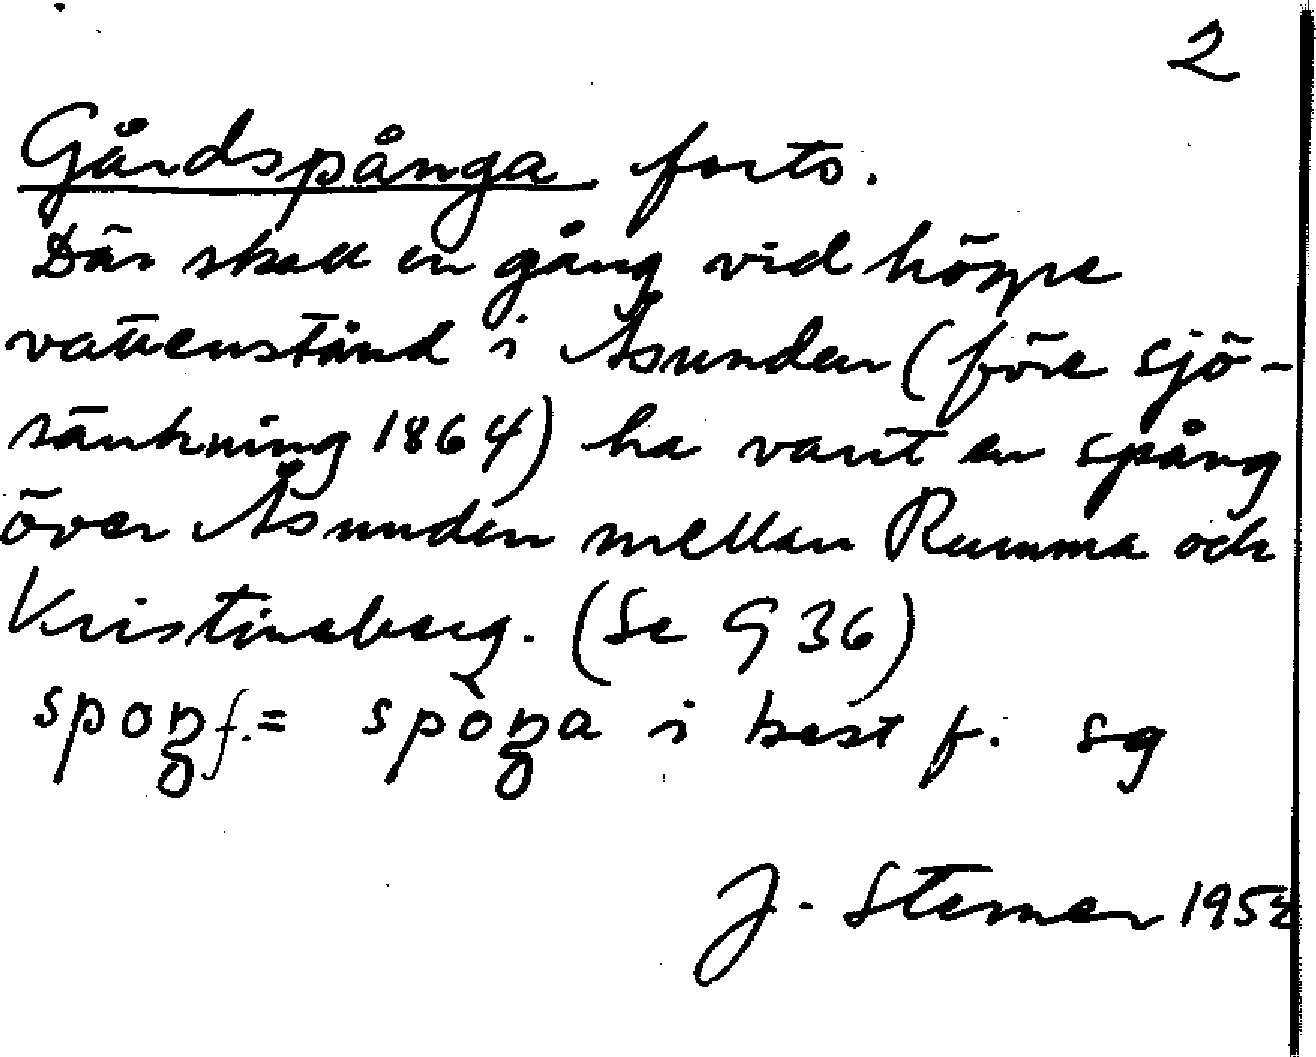 2
Gårdspånga forts.
Där skall en gång vid högre
vattenstånd i Åsunden (före sjö-
sänkning 1864) ha varit en spång
över Åsunden mellan Rumma och
Kristineberg. (Se G 36)
spoŋ f. = spòŋa i best f. sg
J. Sterner